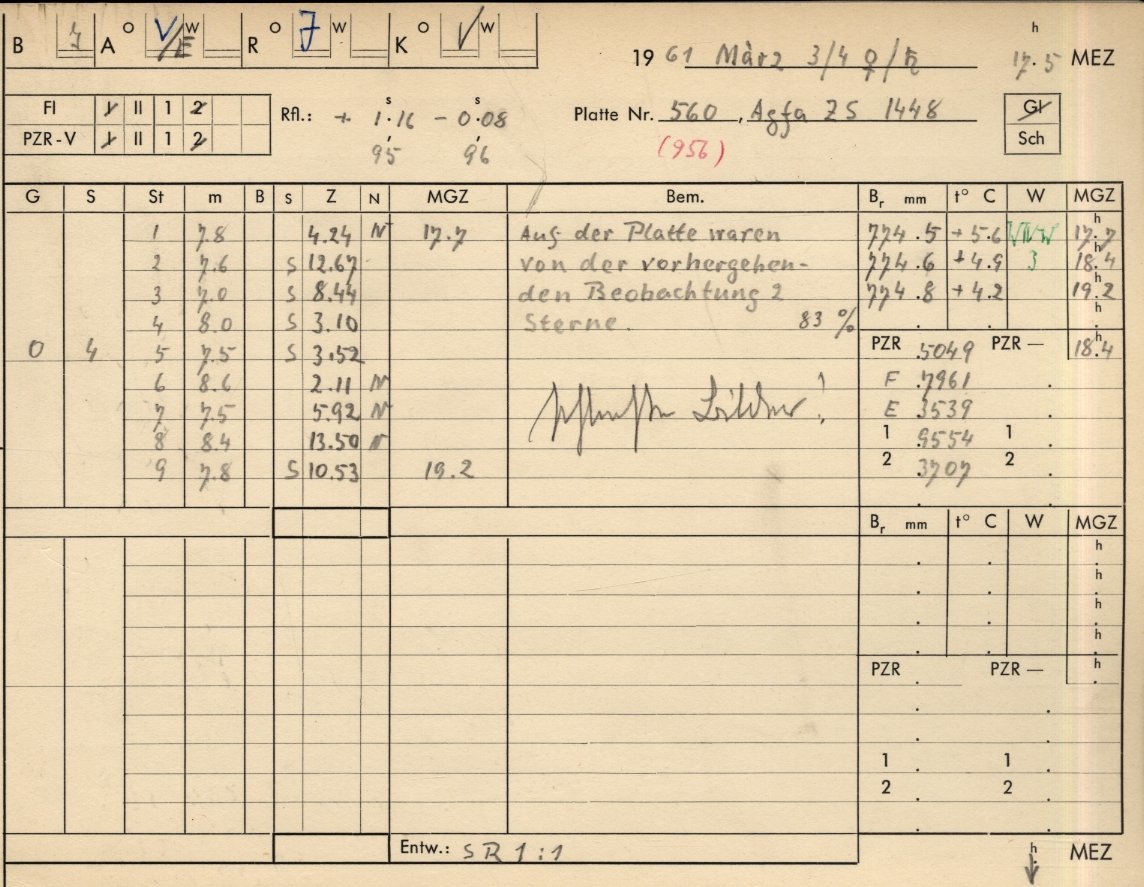 B J A ° V/E W R ° J W K ° V W
h
19 61 März 3/4 ♀/♄ 17.5 MEZ
FI I II 1 2
PZR-V I II 1 2
Rfl.: + 1ˢ.16 - 0ˢ.08
95 96
Platte Nr. 560, Agfa ZS 1448
(956)
Gl
Sch
G S St m B S Z N MGZ Bem. Bᵣ mm t° C W MGZ
1 7.8 4.24 N 17.7 Auf der Platte waren 774.5 +5.6 WNW 17.7
2 7.6 S 12.67 von der vorhergehen- 774.6 +4.9 3 18.4
3 7.0 S 8.44 den Beobachtung 2 774.8 +4.2 19.2
4 8.0 S 3.10 Sterne. 83 %
0 4 5 7.5 S 3.52 PZR .5049 PZR — 18.4
6 8.6 2.11 N F .7961
7 7.5 5.92 N Bilder! E .3539
8 8.4 13.50 N 1 .9554 1
9 7.8 S 10.53 19.2 2 .3707 2
Bᵣ mm t° C W MGZ
h
h
h
h
PZR PZR — h
1 1
2 2
Entw.: SR 1:1 h MEZ